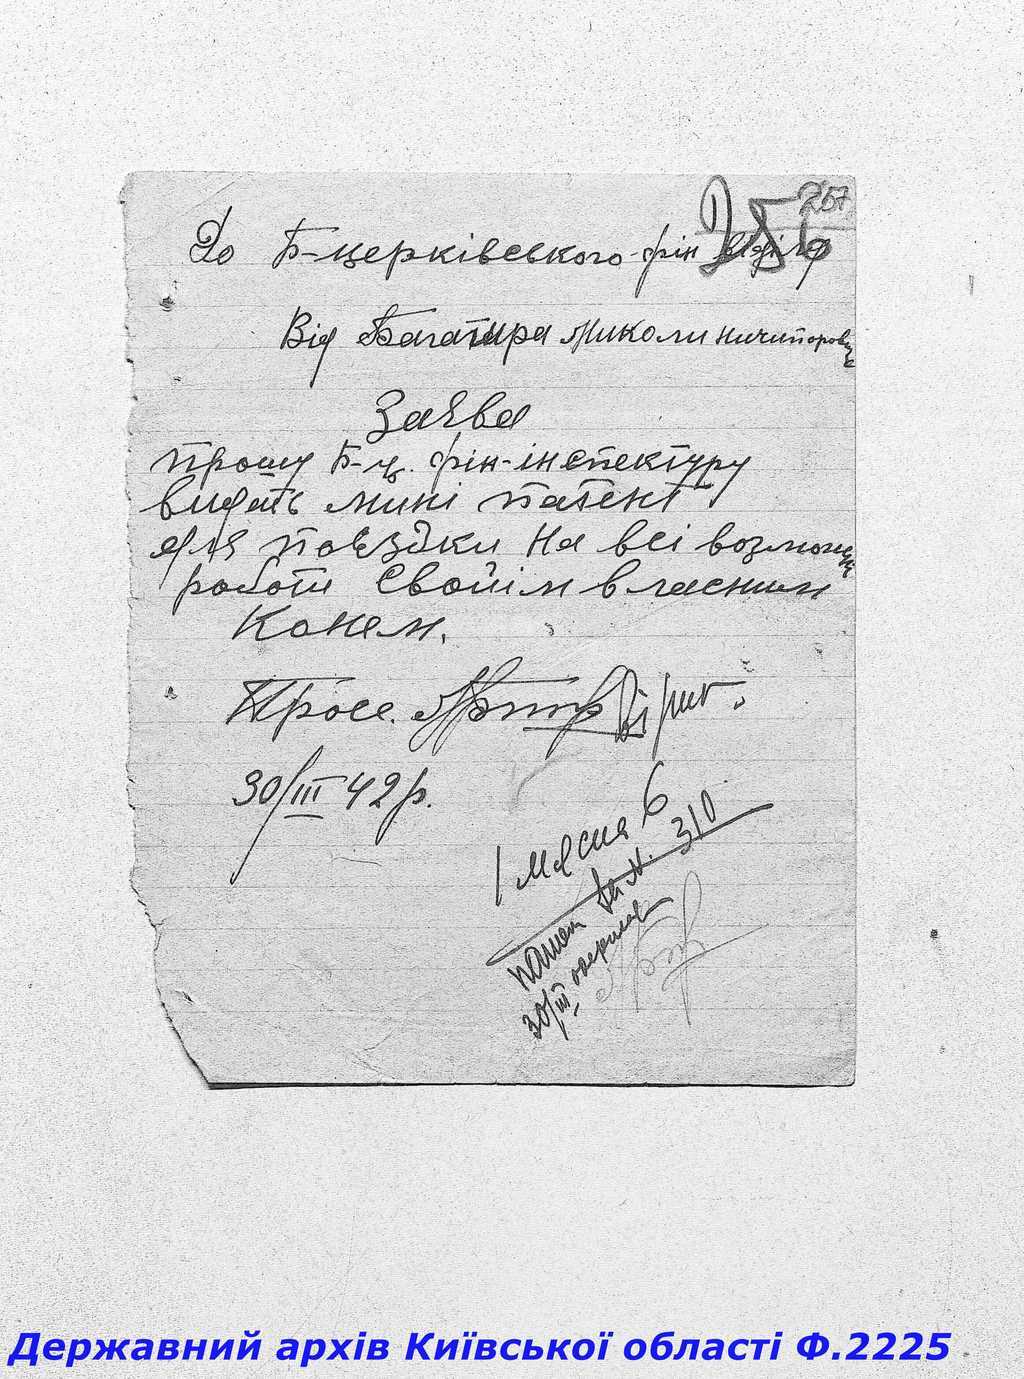 257
256
До Б-церківського фін відділа
Від Багатира Миколи Ничипоровича
Заява
прошу Б-ц. фін-інспектуру
видать мині патент
для поєздки на всі возможни
роботи своїм власним
конем.
Прос.
30/III 42 р.
1 Мясна 6
патент за N. 310
30/III одержав
Державний архів Київської області Ф.2225